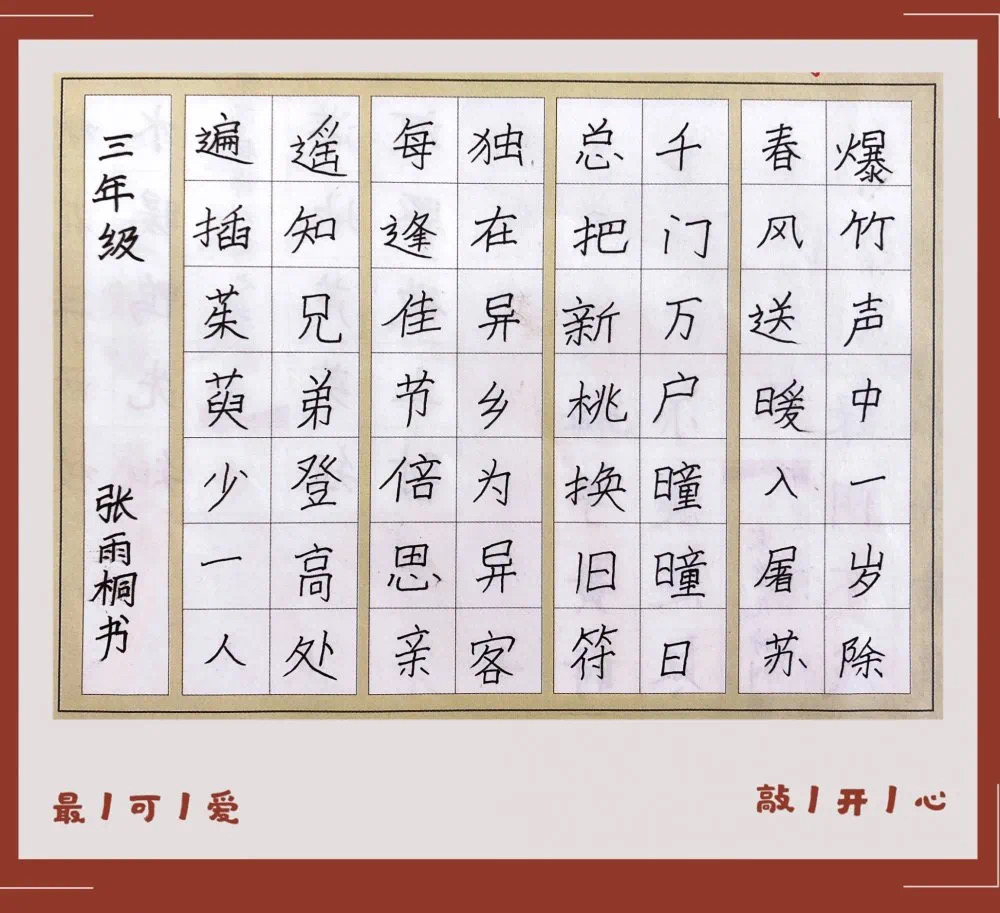 爆竹声中一岁除
春风送暖入屠苏
千门万户曈曈日
总把新桃换旧符
独在异乡为异客
每逢佳节倍思亲
遥知兄弟登高处
遍插茱萸少一人
三年级 张雨桐书
最|可|爱
敲|开|心